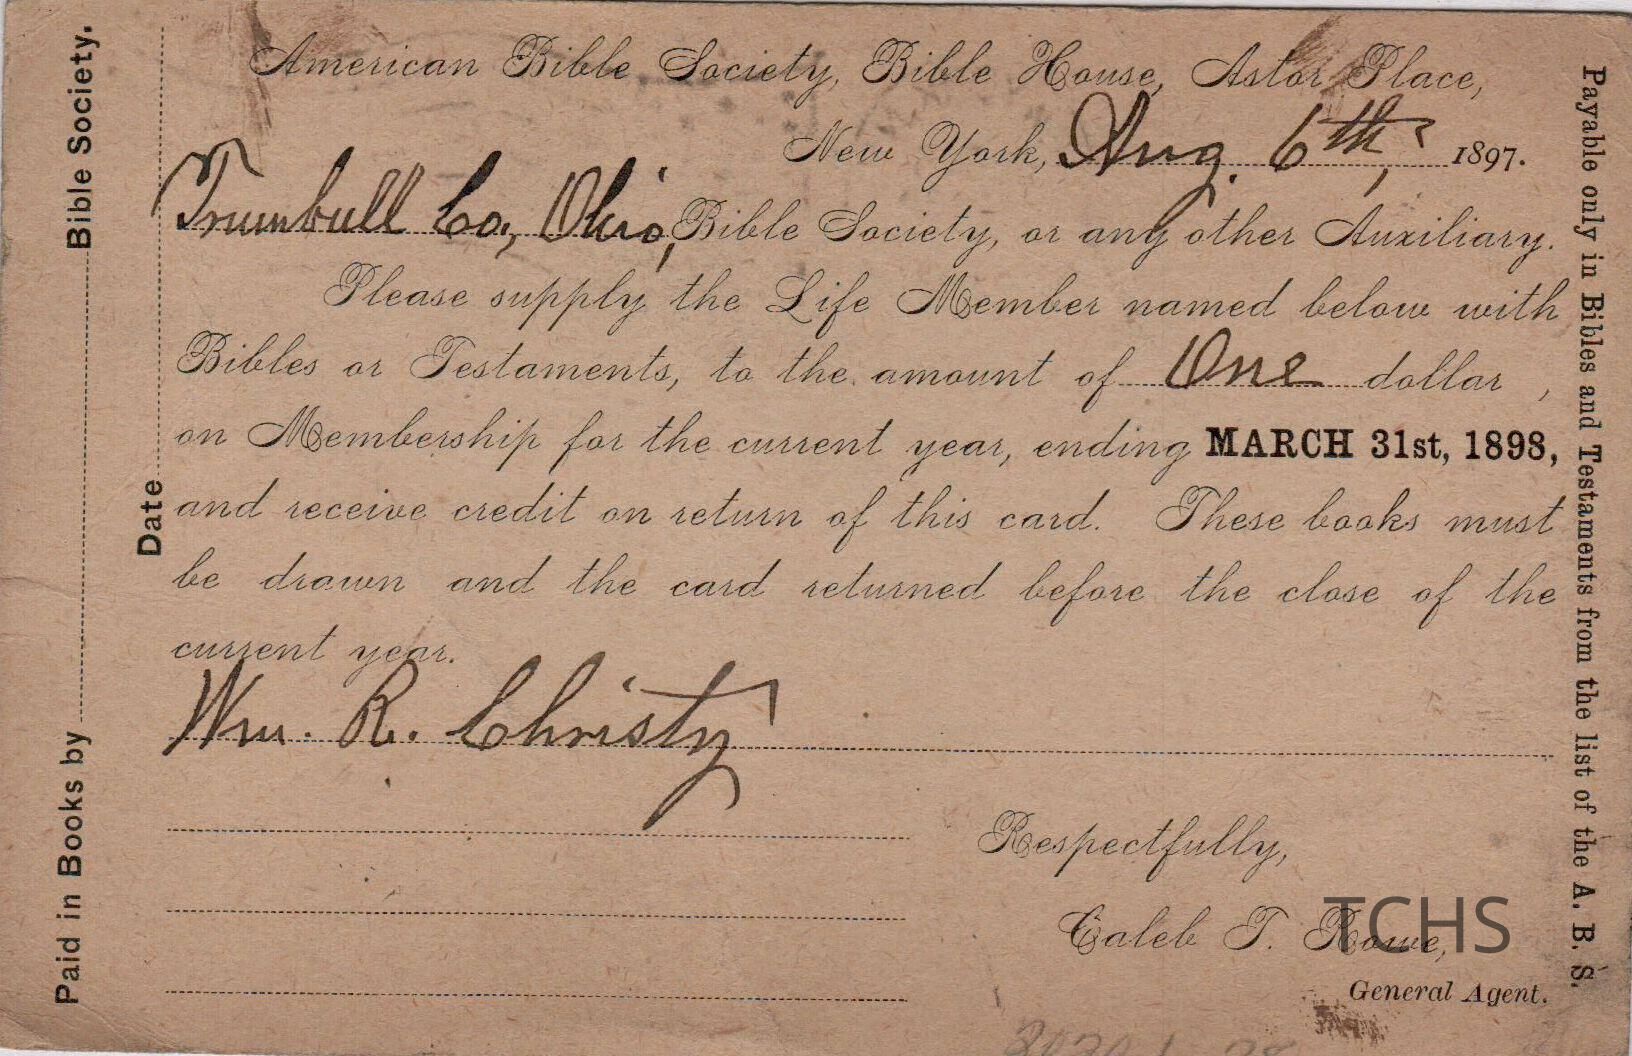 American Bible Society, Bible House, Astor Place,
New York, Aug. 6th, 1897.
Trumbull Co., Ohio, Bible Society, or any other Auxiliary.
Please supply the Life Member named below with
Bibles or Testaments, to the amount of One dollar ,
on Membership for the current year, ending MARCH 31st, 1898,
and receive credit on return of this card. These books must
be drawn and the card returned before the close of the
current year.
Wm. R. Christy
Respectfully,
Caleb T. Rowe,
General Agent.
TCHS
Paid in Books by Bible Society.
Date
Payable only in Bibles and Testaments from the list of the A. B. S.